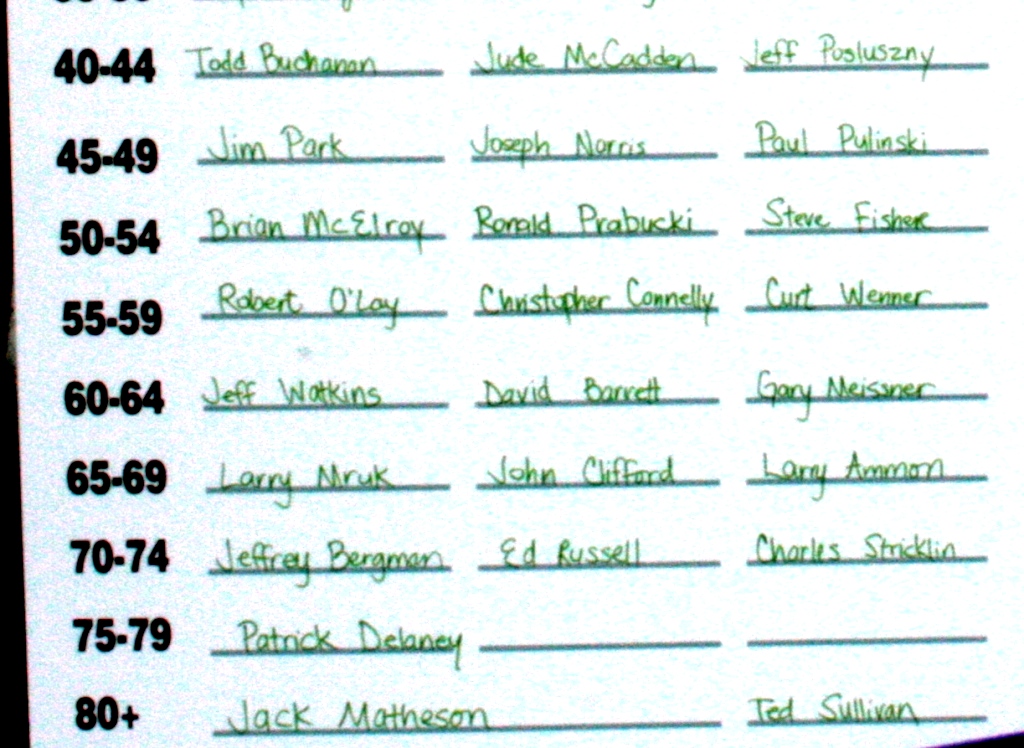 40-44 Todd Buchanan Jude McCadden Jeff Posluszny
45-49 Jim Park Joseph Norris Paul Pulinski
50-54 Brian McElroy Ronald Prabucki Steve Fisher
55-59 Robert O'Lay Christopher Connelly Curt Wenner
60-64 Jeff Watkins David Barrett Gary Meissner
65-69 Larry Mruk John Clifford Larry Ammon
70-74 Jeffrey Bergman Ed Russell Charles Stricklin
75-79 Patrick Delaney
80+ Jack Matheson Ted Sullivan